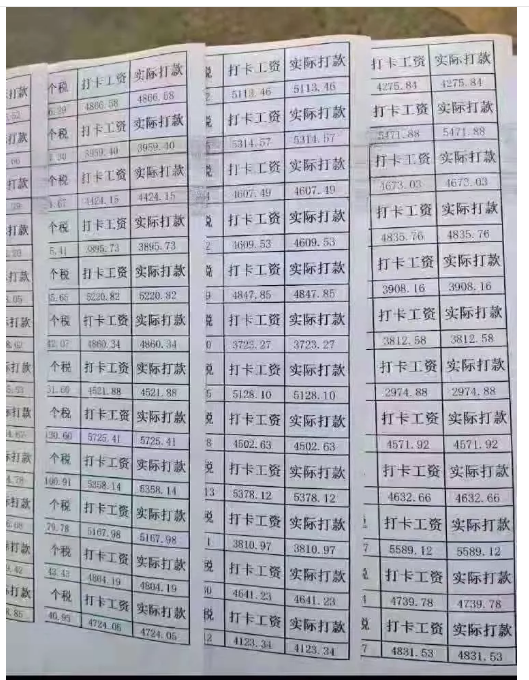 个税 打卡工资 实际打款
4866.58 4866.58
个税 打卡工资 实际打款
3959.40 3959.40
个税 打卡工资 实际打款
4424.15 4424.15
个税 打卡工资 实际打款
5.41 3895.73 3895.73
个税 打卡工资 实际打款
5220.82 5220.82
个税 打卡工资 实际打款
4860.34 4860.34
个税 打卡工资 实际打款
4521.88 4521.88
个税 打卡工资 实际打款
5725.41 5725.41
个税 打卡工资 实际打款
5358.14 5358.14
个税 打卡工资 实际打款
79.78 5167.98 5167.98
个税 打卡工资 实际打款
4804.19 4804.19
个税 打卡工资 实际打款
40.95 4724.05 4724.05
税 打卡工资 实际打款
5113.46 5113.46
税 打卡工资 实际打款
5314.57 5314.57
税 打卡工资 实际打款
4607.49 4607.49
税 打卡工资 实际打款
2 3609.53 4609.53
税 打卡工资 实际打款
9 4847.85 4847.85
税 打卡工资 实际打款
0 3723.27 3723.27
税 打卡工资 实际打款
5128.10 5128.10
税 打卡工资 实际打款
8 4502.63 4502.63
税 打卡工资 实际打款
13 5378.12 5378.12
税 打卡工资 实际打款
1 3810.97 3810.97
税 打卡工资 实际打款
4641.23 4641.23
税 打卡工资 实际打款
12 4123.34 4123.34
打卡工资 实际打款
4275.84 4275.84
打卡工资 实际打款
5471.88 5471.88
打卡工资 实际打款
4673.03 4673.03
打卡工资 实际打款
4835.76 4835.76
打卡工资 实际打款
3908.16 3908.16
打卡工资 实际打款
3812.58 3812.58
打卡工资 实际打款
2974.88 2974.88
打卡工资 实际打款
4571.92 4571.92
打卡工资 实际打款
4632.66 4632.66
打卡工资 实际打款
7 5589.12 5589.12
打卡工资 实际打款
4739.78 4739.78
税 打卡工资 实际打款
7 4831.53 4831.53